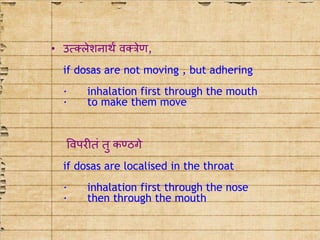 • उत्क्लेशनार्थं वक्त्रेण,
if dosas are not moving , but adhering
· inhalation first through the mouth
· to make them move
विपरीतं तु कण्ठगे
if dosas are localised in the throat
· inhalation first through the nose
· then through the mouth